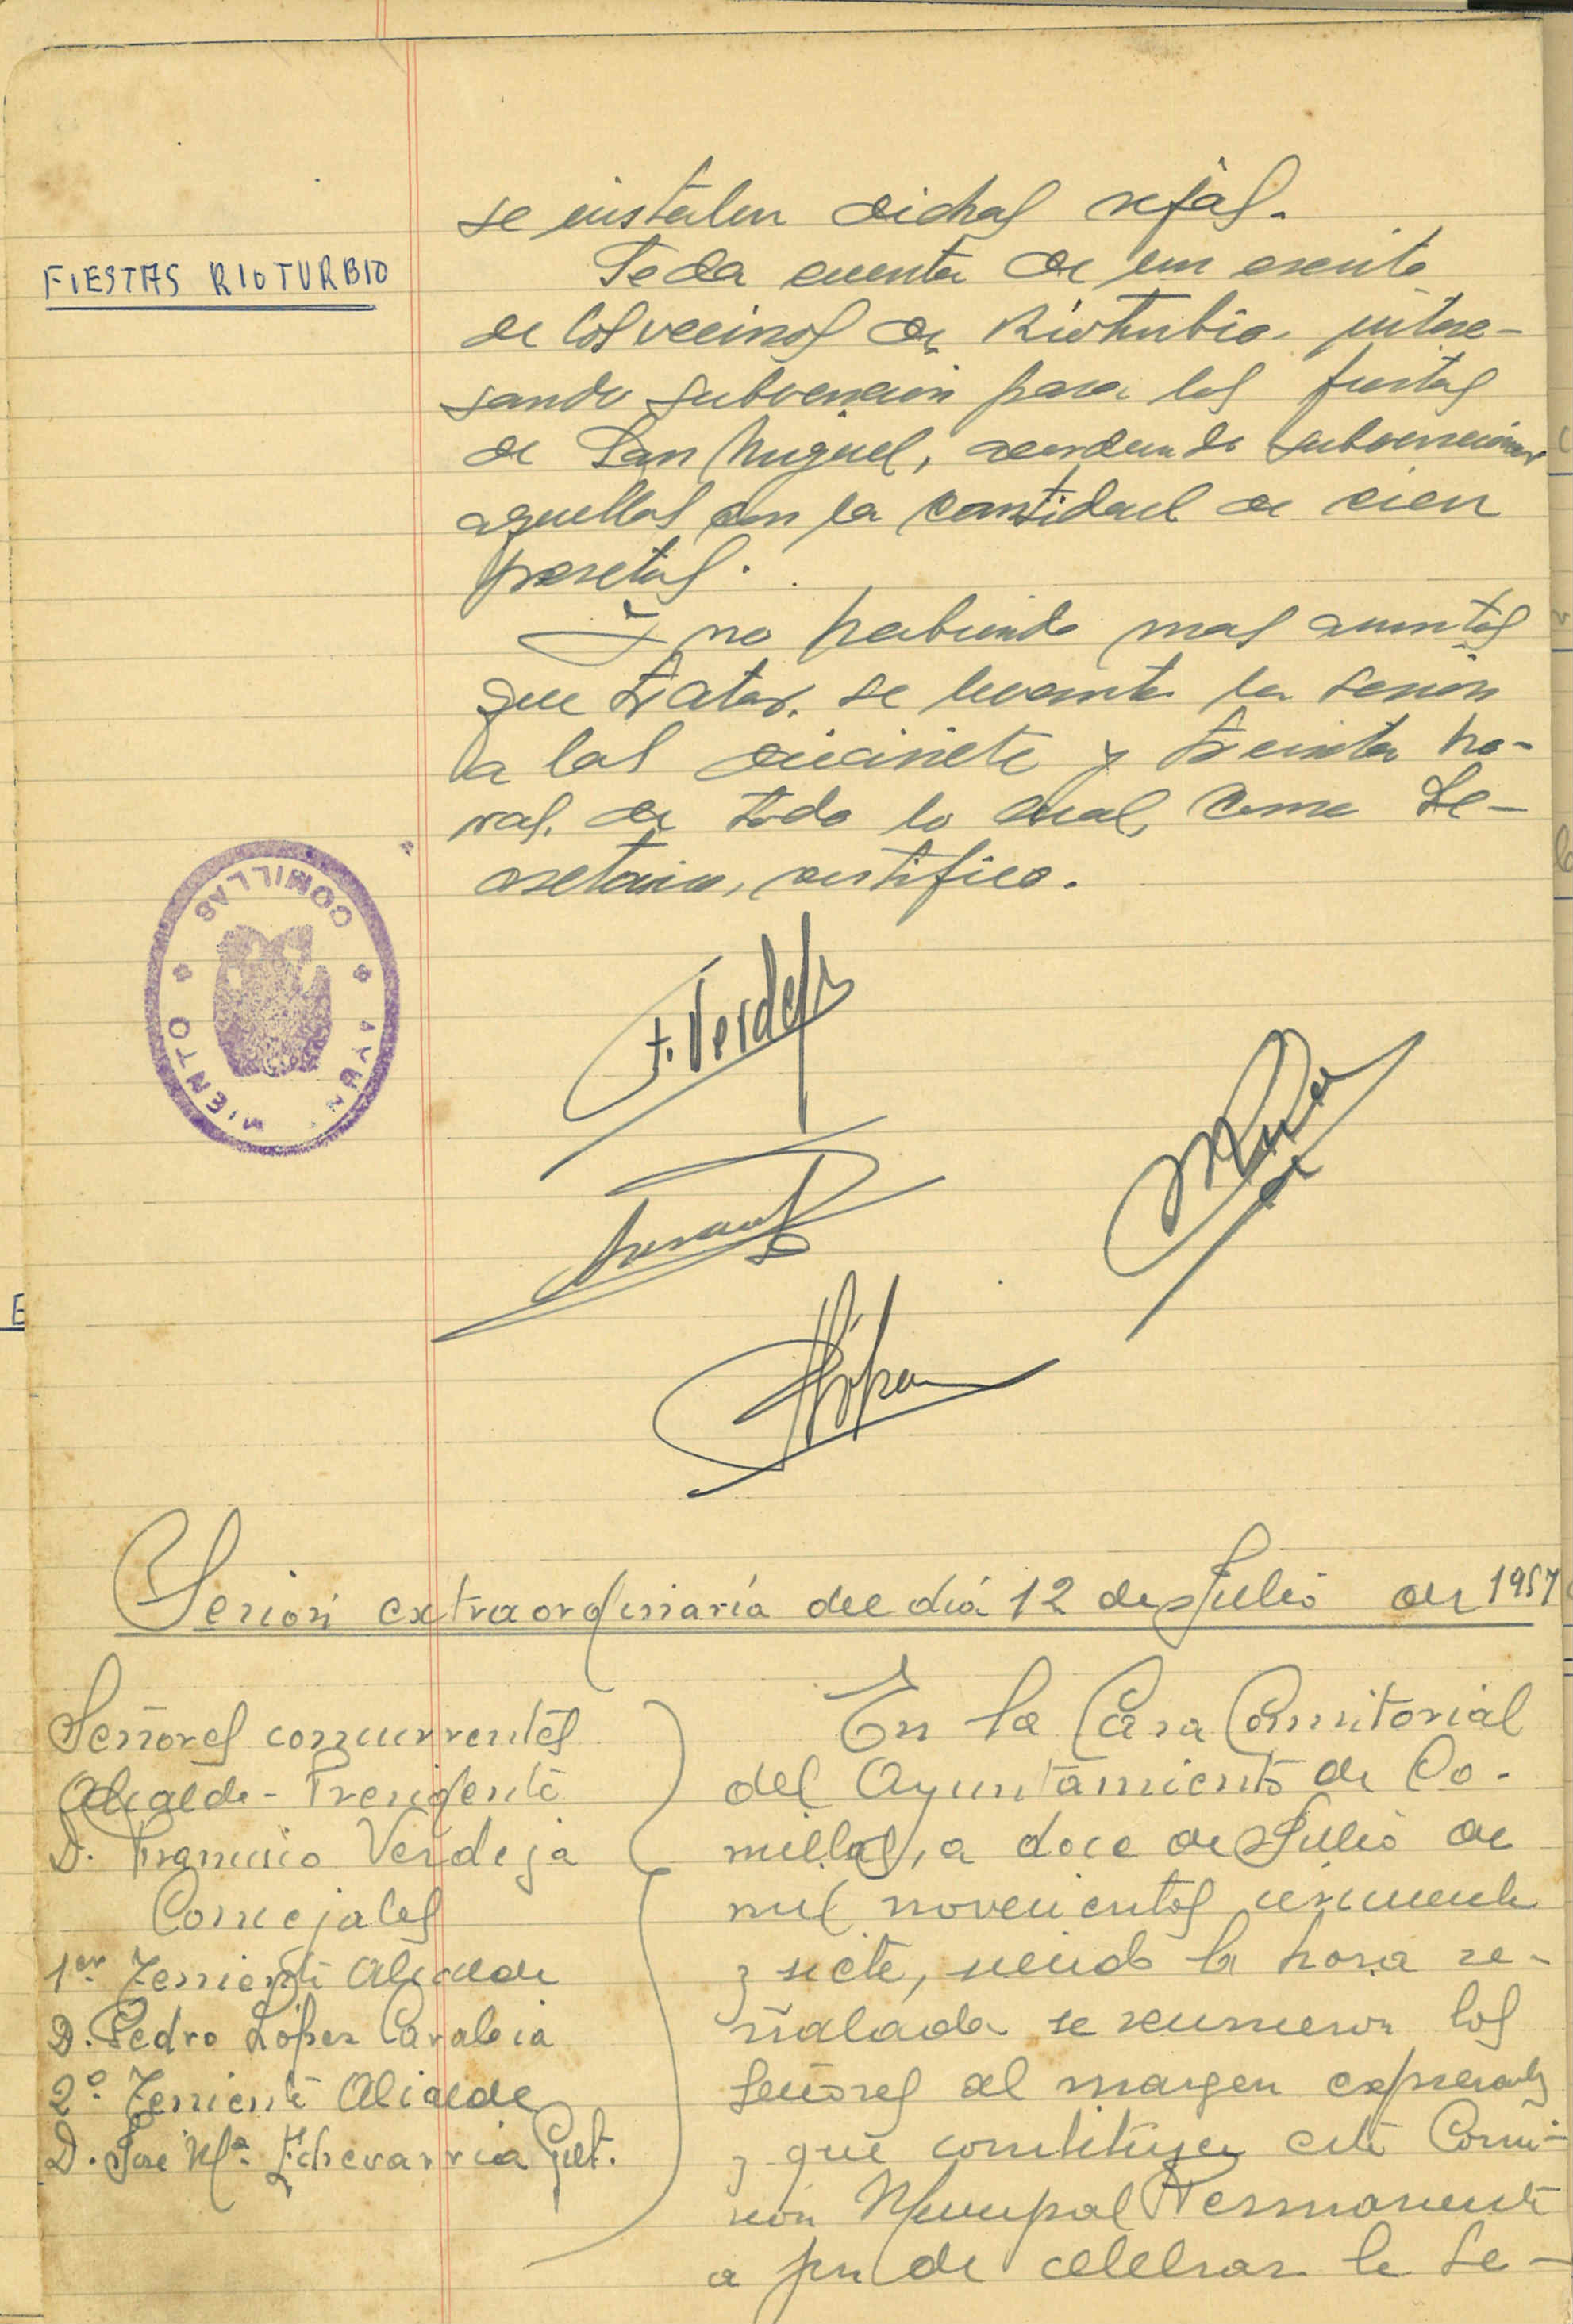 se instalen dichas rejas.
FIESTAS RIOTURBIO
Se da cuenta de un escrito
de los vecinos de Rioturbio, intere-
sando subvención para las fiestas
de San Miguel, acordando subvencionar
aquellas con la cantidad de cien
pesetas.
Y no habiendo mas asuntos
que tratar, se levanta la sesión
a las diecisiete y treinta ho-
ras, de todo lo cual, como Se-
cretario, certifico.
AYUNTAMIENTO COMILLAS
F. Verdeja
Sesion extraordinaria del dia 12 de Julio de 1957
Señores concurrentes
Alcalde-Presidente
D. Francisco Verdeja
Concejales
1er. Teniente Alcalde
D. Pedro López Carabia
2º Teniente Alcalde
D. Jose Mª. Echevarria Gut.
En la Casa Consistorial
del Ayuntamiento de Co-
millas, a doce de Julio de
mil novecientos cincuenta
y siete, siendo la hora se-
ñalada se reunieron los
señores al margen expresados
y que constituyen esta Comi-
sión Municipal Permanente
a fin de celebrar la Se-